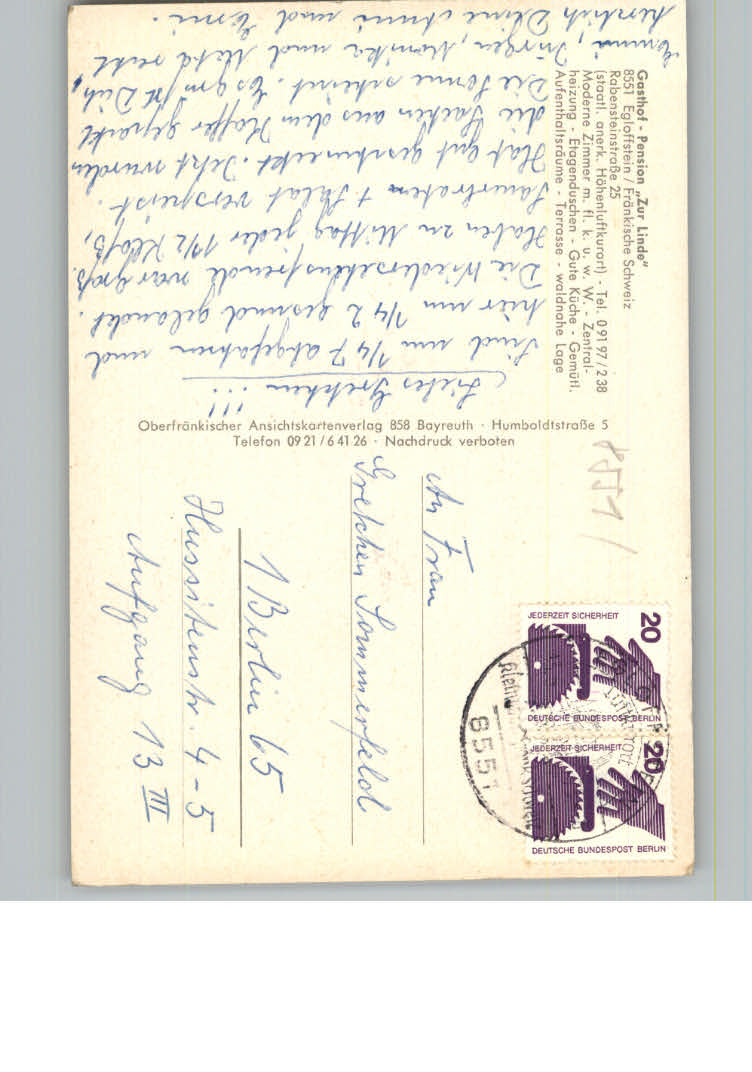 Gasthof - Pension „Zur Linde"
8551 Egloffstein / Fränkische Schweiz
Rabensteinstraße 25
(staatl. anerk. Höhenluftkurort) - Tel. 0 91 97 / 2 38
Moderne Zimmer m. fl. k. u. w. W. - Zentral-
heizung - Etagenduschen - Gute Küche - Gemütl.
Aufenthaltsräume - Terrasse - waldnahe Lage
Liebes Gretchen !!!
Sind um 1/4 7 abgefahren und
hier um 1/4 2 gesund gelandet.
Die Wiedersehensfreude war groß.
Haben zu Mittag jeder 1 1/2 Klöße,
Sauerbraten + Salat verspeist.
Hat gut geschmeckt. Jetzt wurden
die Sachen aus dem Koffer gepackt
Die Sonne scheint. Es grüßt Dich,
Jürgen, Monika und Meta recht
herzlich Deine Anni und Erni.
Oberfränkischer Ansichtskartenverlag 858 Bayreuth · Humboldtstraße 5
Telefon 09 21 / 6 41 26 · Nachdruck verboten
8551
An Frau
Gretchen Sommerfeld
1 Berlin 65
Hussitenstr. 4-5
Aufgang 13 III
JEDERZEIT SICHERHEIT
20
DEUTSCHE BUNDESPOST BERLIN
JEDERZEIT SICHERHEIT
20
DEUTSCHE BUNDESPOST BERLIN
8551